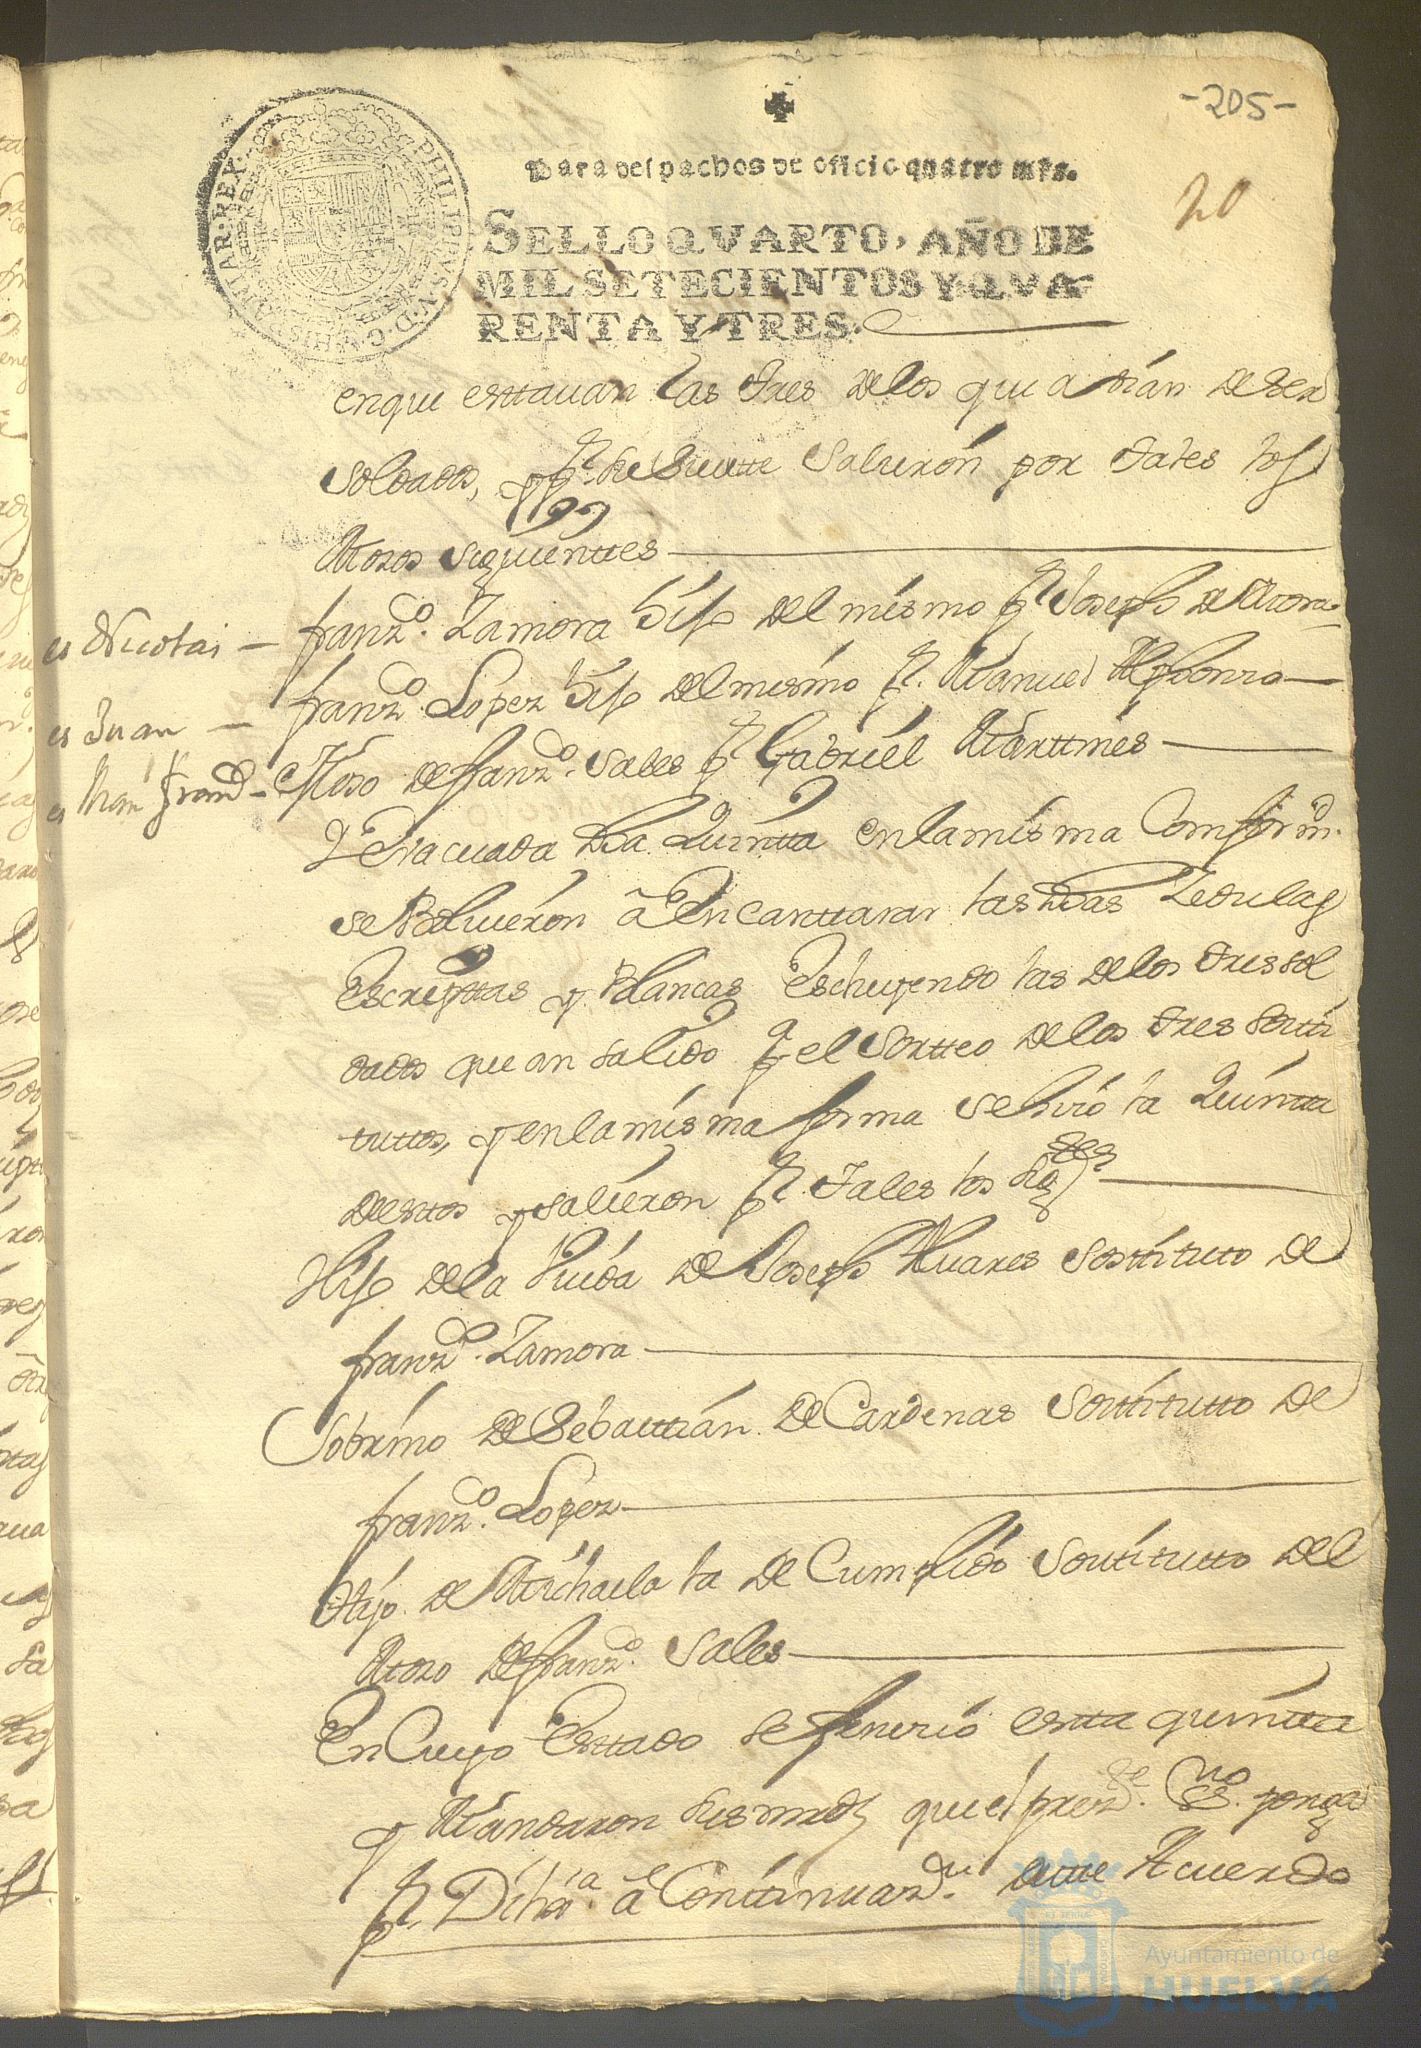 -205-
20
PHILIPPUS·V·D·G· HISPANIAR·REX·
Para despachos de oficio quatro mrs.
SELLO QVARTO, AÑO DE
MIL SETECIENTOS Y QVA
RENTA Y TRES.
enque esttavan las tres de los que avian de ser
soldados, y pr. suertte salieron por tales los
Mozos siguientes
es Nicolas — franzco. Zamora hijo del mismo pr Joseph de Mora
es Juan — franzco. Lopez hijo del mesmo pr. Manuel Alphonso
es Juan franco — Mozo de franzco. Sales pr Gabriel Marttines
Y evacuada dha Quintta en la misma Comformd.
se Bolvieron â encanttarar las dhas Zedulas
Escripttas y Blancas Escluyendo las de los tres sol
dados que an salido pa el Sortteo de los tres sostti
tuttos, y en la misma forma se hizo la Quintta
de esttos y salieron pr. tales los sigtes
Hijo de la Viuda de Joseph Suares Sostituto de
franzco. Zamora
Sobrino de Sebasttian de Cardenas Sosttitutto de
franzco. Lopez
Hijo de Michaela la de Cumplido Sosttitutto del
Mozo de franzco. Sales
En Cuyo Esttado se feneció estta quintta
y Mandaron sus mrds que el preste. Esno. ponga
pr. Diliga. â Conttinuazn. de este Acuerdo
Ayuntamiento de
HUELVA